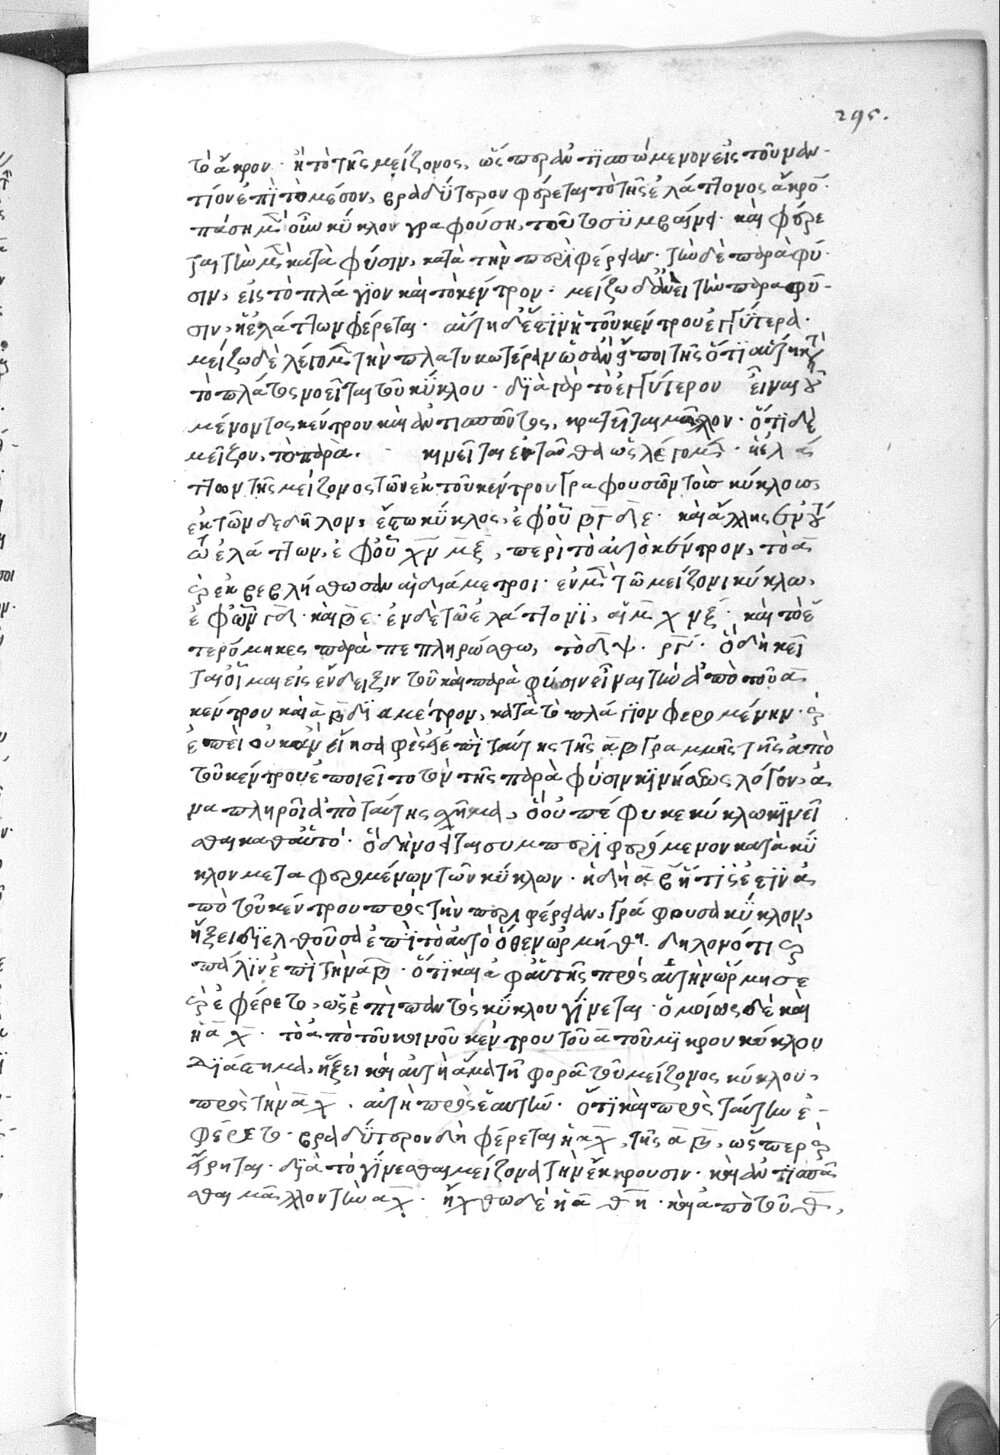 295.
τὸ ἄκρον · ἢ τὸ τῆς μείζονος, ὥσπερ ἀντισπώμενον εἰς τοὐναν-
τίον ἐπὶ τὸ μέσον, βραδύτερον φέρεται τὸ τῆς ἐλάττονος ἄκρον ·
πάσῃ μὲν οὖν κύκλον γραφούσῃ, τοῦτο συμβαίνει · καὶ φέρε
ται τὴν μὲν κατὰ φύσιν, κατὰ τὴν περιφέρειαν · τὴν δὲ παρὰ φύ-
σιν, εἰς τὸ πλάγιον καὶ τὸ κέντρον · μείζω δ' ἀεὶ τὴν παρὰ φύ-
σιν, ἡ ἐλάττων φέρεται · αὕτη δέ ἐστιν ἡ τοῦ κέντρου ἐγγύτερα ·
μείζω δὲ λέγομεν τὴν πλατυκωτέραν ὡς ἂν εἴποι τῆς ὅτι αὕτη κατὰ
τὸ πλάτος νοεῖται τοῦ κύκλου · διὰ γὰρ τὸ ἐγγύτερον εἶναι τοῦ
μένοντος κέντρου καὶ ἀντισπῶντος, κρατεῖται μᾶλλον · ὅτι δὲ
μεῖζον, τὸ παρὰ · κινεῖται ἐνταῦθα ὡς λέγομεν · ἡ ἐλά
ττων τῆς μείζονος τῶν ἐκ τοῦ κέντρου γραφουσῶν τοὺς κύκλους,
ἐκ τῶνδε δῆλον, ἔστω κύκλος, ἐφ' οὗ βγδε · καὶ ἄλλης ἐν τού
τῳ ἐλάττων, ἐφ' οὗ χν μξ, περὶ τὸ αὐτὸ κέντρον, τὸ α
καὶ ἐκβεβλήσθωσαν αἱ διάμετροι · ἐν μὲν τῷ μείζονι κύκλῳ,
ἐφ' ὧν γδ · καὶ βε · ἐν δὲ τῷ ἐλάττονι, αἱ μ χ νξ · καὶ τὸ ἑ
τερόμηκες παραπεπληρώσθω, τὸ δψ · ργ · ὃ δὴ κεῖ
ται οἶμαι εἰς ἔνδειξιν τοῦ καὶ παρὰ φύσιν εἶναι τὴν ἀπὸ τοῦ α
κέντρου καὶ α β διαμέτρον, κατὰ τὸ πλάγιον φερομένην · καὶ
ἐπεὶ οὐκ ἂν εἴη σαφὲς ἐπὶ ταύτης τῆς α β γραμμῆς τῆς ἀπὸ
τοῦ κέντρου ἐποιεῖτο τὸν τῆς παρὰ φύσιν κινήσεως λόγον, ἀ
ναπληροῖ ἀπὸ ταύτης σχῆμα, ὃ οὐ πέφυκε κύκλῳ κινεῖ
σθαι καθ' αὑτὸ · ὃ δὴ νοεῖται συμπεριφερόμενον κατὰ κύ
κλον μεταφερομένων τῶν κύκλων · ἡ δὴ α β ἥτις ἐστὶν ἀ
πὸ τοῦ κέντρου πρὸς τὴν περιφέρειαν, γράφουσα κύκλον,
ἥξει διελθοῦσα ἐπὶ τὸ αὐτὸ ὅθεν ὡρμήθη · δηλονότι καὶ
πάλιν ἐπὶ τὴν α β · ὅτι καὶ ἀφ' αὑτῆς πρὸς αὑτὴν ὥρμησε
καὶ ἐφέρετο, ὡς ἐπὶ παντὸς κύκλου γίνεται · ὁμοίως δὲ καὶ
ἡ α χ · τὸ ἀπὸ τοῦ κοινοῦ κέντρου τοῦ α τοῦ μικροῦ κύκλου
διάστημα, ἥξει καὶ αὐτὴ ἅμα τῇ φορᾷ τοῦ μείζονος κύκλου,
πρὸς τὴν α χ · αὐτὴ πρὸς ἑαυτὴν · ὅτι καὶ πρὸς ταύτην ἐ-
φέρετο · βραδύτερον δὴ φέρεται ἡ α χ, τῆς α β, ὥσπερ καὶ
εἴρηται · διὰ τὸ γίνεσθαι μείζονα τὴν ἔκκρουσιν · καὶ ἀντισπᾶ
σθαι μᾶλλον τὴν α χ · ἤχθω δὲ ἡ α θ η · καὶ ἀπὸ τοῦ θ,